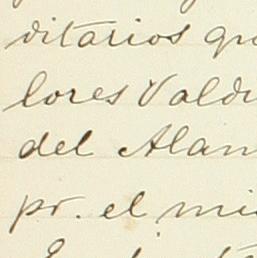 ditarios que
lores Vald
del Alam
pr. el mi